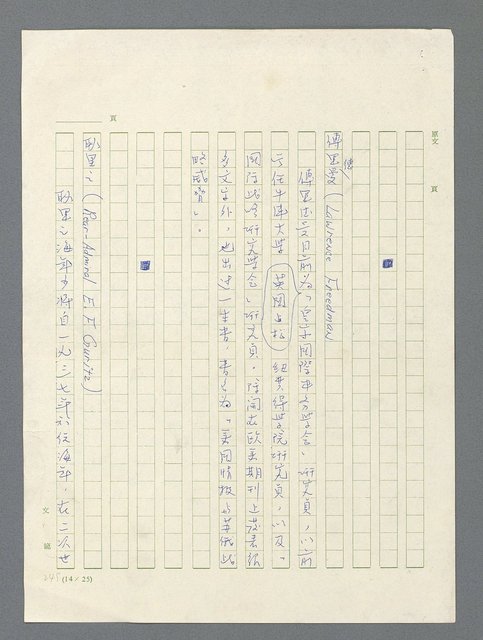 原文 頁
傅里曼(Lawrence Freedman
傅里德曼目前為「皇家國際事務學會」研究員,以前
曾任牛津大學 英國 紐菲得學院研究員,以及「
國際戰略研究學會」研究員。除開在歐美期刊上發表很
多文章外,也出過一本書,書名為「美國情報與蘇俄戰
略威脅」。
耿里之(Rear-Admiral E F Gueritz)
耿里之海軍少將自一九三七年於役海軍,在二次世
頁
文 總
245 (14/25)